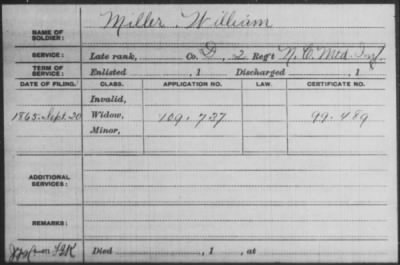 Miller, William
NAME OF SOLDIER:
SERVICE: Late rank, Co. D, 2 Reg't N.C. Mtd. Inf.
TERM OF SERVICE: Enlisted , 1 Discharged , 1
DATE OF FILING. CLASS. APPLICATION NO. LAW. CERTIFICATE NO.
Invalid,
1865. Sept. 20 Widow, 109.737 99.489
Minor,
ADDITIONAL SERVICES:
REMARKS:
Died , 1 , at